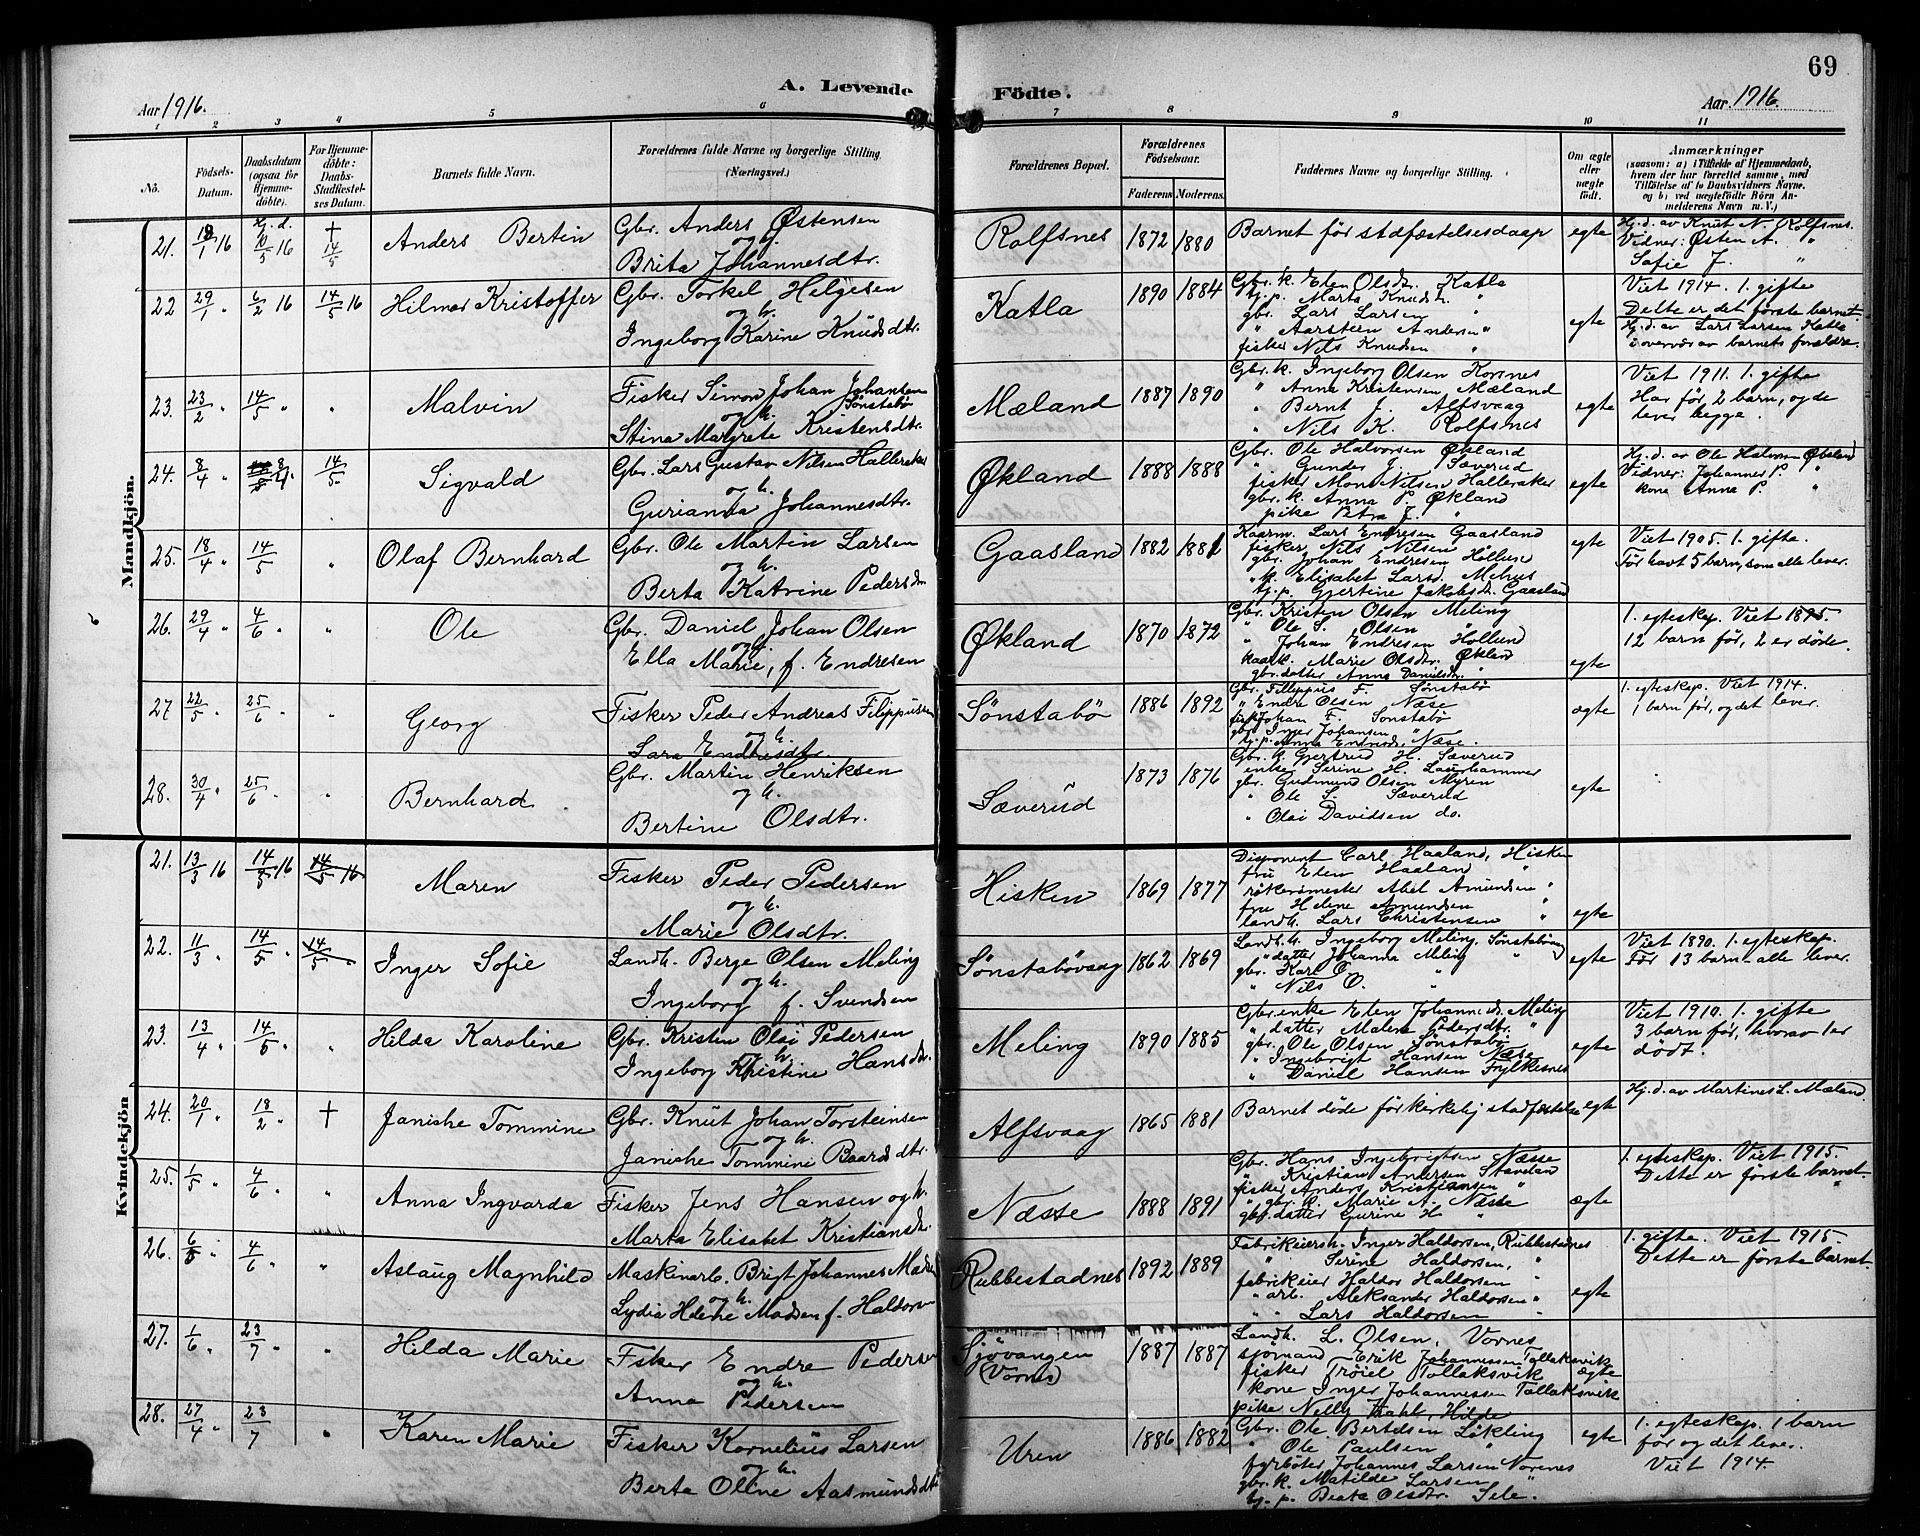 69
Aar 1916.
A. Levende Födte.
Aar 1916.
1 2 3 4 5 6 7 8 9 10 11
No.
Födsels-Datum.
Daabsdatum (ogsaa for Hjemmedöbte).
For Hjemmedöbte: Daabs-Stadfæstelses Datum.
Barnets fulde Navn.
Forældrenes fulde Navne og borgerlige Stilling. (Næringsvei.)
Forældrenes Bopæl.
Forældrenes Födselsaar.
Faderens. Moderens.
Faddernes Navne og borgerlige Stilling.
Om ægte eller uægte födt.
Anmærkninger
(saasom: a) i Tilfælde af Hjemmedaab, hvem der har forrettet samme, med Tilföielse af to Daabsvidners Navne, og b) ved uægtefödte Börn Anmelderens Navn m. V.)
Mandkjön.
21. 18/1 16 Hj.d. 10/5 16 † 14/5 Anders Bertin
Gbr. Anders Østensen
og h.
Brita Johannesdtr.
Rolfsnes 1872 1880
Barnet før stadfæstelsesdaap
egte
Hj.d. av Knut N. Rolfsnes.
Vidner: Østen A. "
Sofie J. "
22 29/1 " 6/2 16 14/5 16 Hilmar Kristoffer
Gbr. Torkel Helgesen
og h.
Ingeborg Karine Knudsdtr.
Katla 1890 1884
Gbr. k. Elen Olsdr. Katla
tj.p. Marta Knudsdr. "
gbr. Lars Larsen "
" Aarsteen Andersen "
fisker Nils Knudsen "
egte
Viet 1914. 1. gifte
Dette er det første barnet.
Hj.d. av Lars Larsen Katla
i overvær av barnets forældre.
23. 23/2 " 14/5 " " Malvin
Fisker Simon Johan Johansen
Sønstabø
og h.
Stina Margrete Kristensdtr.
Mæland 1887 1890
Gbr.k. Ingeborg Olsen Kornes
" Anna Kristensen Mæland
" Bernt J. Alfsvaag
" Nils K. Rolfsnes
egte
Viet 1911. 1. gifte
Har før 2 barn, og de
lever begge.
24. 8/4 " 8/4 14/5 Sigvald
Gbr. Lars Gustav Nilsen Halleraker
og h.
Gurianna Johannesdtr.
Økland 1888 1888
Gbr. Ole Halvorsen Økland
" Gunder J. Sæverud
fisker Mons Nilsen Halleraker
gbr. k. Anna P. Økland
pike Petra J. "
egte
Hj.d. av Ole Halvorsen Økland
Vidner: Johannes P. "
kone Anna P. "
25. 18/4 " 14/5 " Olaf Bernhard
Gbr. Ole Martin Larsen
og h.
Berta Katrine Pedersdtr.
Gaasland 1882 1881
Kaarm. Lars Endresen Gaasland
fisker Nils Nilsen "
gbr. Johan Endresen Hollund
" k. Elisabet Larsd. Mehus
tj.p. Gjertine Jakobsdr. Gaasland
egte
Viet 1905. 1. gifte.
Før havt 5 barn, som alle lever.
26. 29/4 " 4/6 " " Ole
Gbr. Daniel Johan Olsen
og h.
Ella Marie, f. Endresen
Økland 1870 1872
Gbr. Kristen Olsen Meling
" Ole S. Olsen "
" Johan Endresen Hollund
kaark. Marie Olsdtr. Økland
gbr. datter Anna Danielsdr. "
egte
1. egteskap. Viet 1895.
12 barn før, 2 er døde.
27 22/5 " 25/6 " " Georg
Fisker Peder Andreas Filippussen
og h.
Lara Endresdtr.
Sønstabø 1886 1892
Gbr. Filippus F. Sønstabø
" Endre Olsen Næse
fisk. Johan F. Sønstabø
gbr. Inger Johansen "
tj.p. Anna Endresd. Næse.
ægte
1. egteskap. Viet 1914.
1 barn før, og det lever.
28. 30/4 " 25/6 " Bernhard
Gbr. Martin Henriksen
og h.
Bertine Olsdtr.
Sæverud 1873 1876
Gbr. k. Gjertrud H. Sæverud
enke Serine H. Laurhammer
gbr. Gudmund Olsen Myren
" Ole S. Sæverud
" Olai Davidsen do.
egte
Kvindekjön
21. 13/3 16 14/5 16 14/5 16 Maren
Fisker Peder Pedersen
og h.
Marie Olsdtr.
Hisken 1869 1877
Disponent Carl Haaland, Hisken
fru Elen Haaland "
røkermester Abel Amundsen "
fru Helene Amundsen
landh. Lars Christensen "
egte
22. 11/3 " 14/5 " 14/5 " Inger Sofie
Landh. Berge Olsen Meling
og h.
Ingeborg f. Svendsen
Sønstabøvaag 1862 1869
Landh.h. Ingeborg Meling, Sønstabøvaag
" datter Johanna Meling "
gbr. Karl O. "
" Nils O. "
egte
Viet 1890. 1. egteskap.
Før 13 barn - alle lever.
23. 13/4 " 14/5 " " Hilda Karoline
Gbr. Kristen Olai Pedersen
og h.
Ingeborg Kristine Hansdtr.
Meling 1890 1885
Gbr. enke Elen Johannesd. Meling
" datter Malene Pedersdtr. "
gbr. Ole Olsen Sønstabø
" Ingebrigt Hansen Næse
" Daniel Hansen Fylkesnes
egte
Viet 1910. 1. gifte
3 barn før, hvorav 1 er
dødt.
24. 20/1 " 18/2 " † Janiche Tommine
Gbr. Knut Johan Torsteinsen
og h.
Janiche Tommine Baardsdtr.
Alfsvaag 1865 1881
Barnet døde før kirkelig stadfæstelse
egte
Hj.d. av Martines L. Mæland.
25. 1/5 " 4/6 " " Anna Ingvarda
Fisker Jens Hansen og h.
Marta Elisabet Kristiansdr.
Næsse 1888 1891
Gbr. Hans Ingebrigtsen Næsse
" Kristian Andersen Stavelan
fisker Anders Kristiansen "
" gbr. k. Marie A. Næsse
gbr. datter Gurine H. "
ægte
1. egteskap. Viet 1915.
Dette er første barnet.
26. 6/5 " 4/6 " " Aslaug Magnhild
Maskinarb. Brigt Johannes Madsen
og h.
Lydia Helene Madsen f. Haldorsen
Rubbestadnes 1892 1889
Fabrikeiersk. Inger Haldorsen, Rubbestadnes
" Serine Haldorsen, "
fabrikeier Haldor Haldorsen "
" arb. Aleksander Haldorsen "
" " Lars Haldorsen "
egte
1. gifte. Viet 1915.
Dette er første barnet.
27. 1/6 " 23/7 " " Hilda Marie
Fisker Endre Pedersen
og h.
Anna Pedersen
Sjøvangen
(Vornes) 1887 1887
Landh. L. Olsen, Vornes
sjømand Erik Johannessen Tollaksvik
fisker Trøiel Tollaksvik
kone Inger Johannessen Tollaksvik
pike Nelly Dahl, Hilde
ægte
28. 27/4 " 23/7 " Karen Marie
Fisker Kornelius Larsen
og h.
Berta Oline Aasmundsdtr.
Uren 1886 1882
Gbr. Ole Bertelsen Løkling
" Ole Paulsen "
fyrbøter Johannes Larsen Norenes
gbr. k. Matilde Larsen "
tj.p. Beata Olsdtr. Sele.
egte
1. egteskap. 1 barn
før og det lever.
Viet 1914.